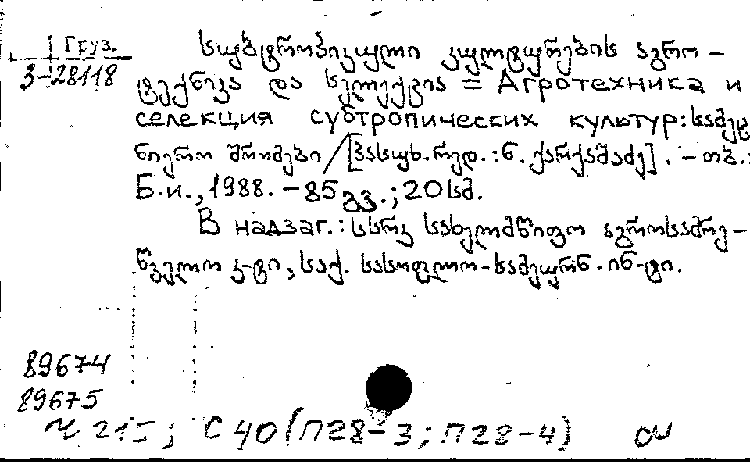 Груз.
3-28118
სუბტროპიკული კულტურების აგრო-
ტექნიკა და სელექცია = Агротехника и
селекция субтропических культур: სამეც
ნიერო შრომები / [პასუხ. რედ.: ნ. ქარქაშაძე]. - თბ.:
Б.и., 1988. - 85 გვ.; 20 სმ.
В надзаг.: სსრკ სახელმწიფო აგროსამრე-
წველო კ-ტი, საქ. სასოფლო-სამეურნ. ინ-ტი.
89674
89675
С 40 (П28-3; П28-4)